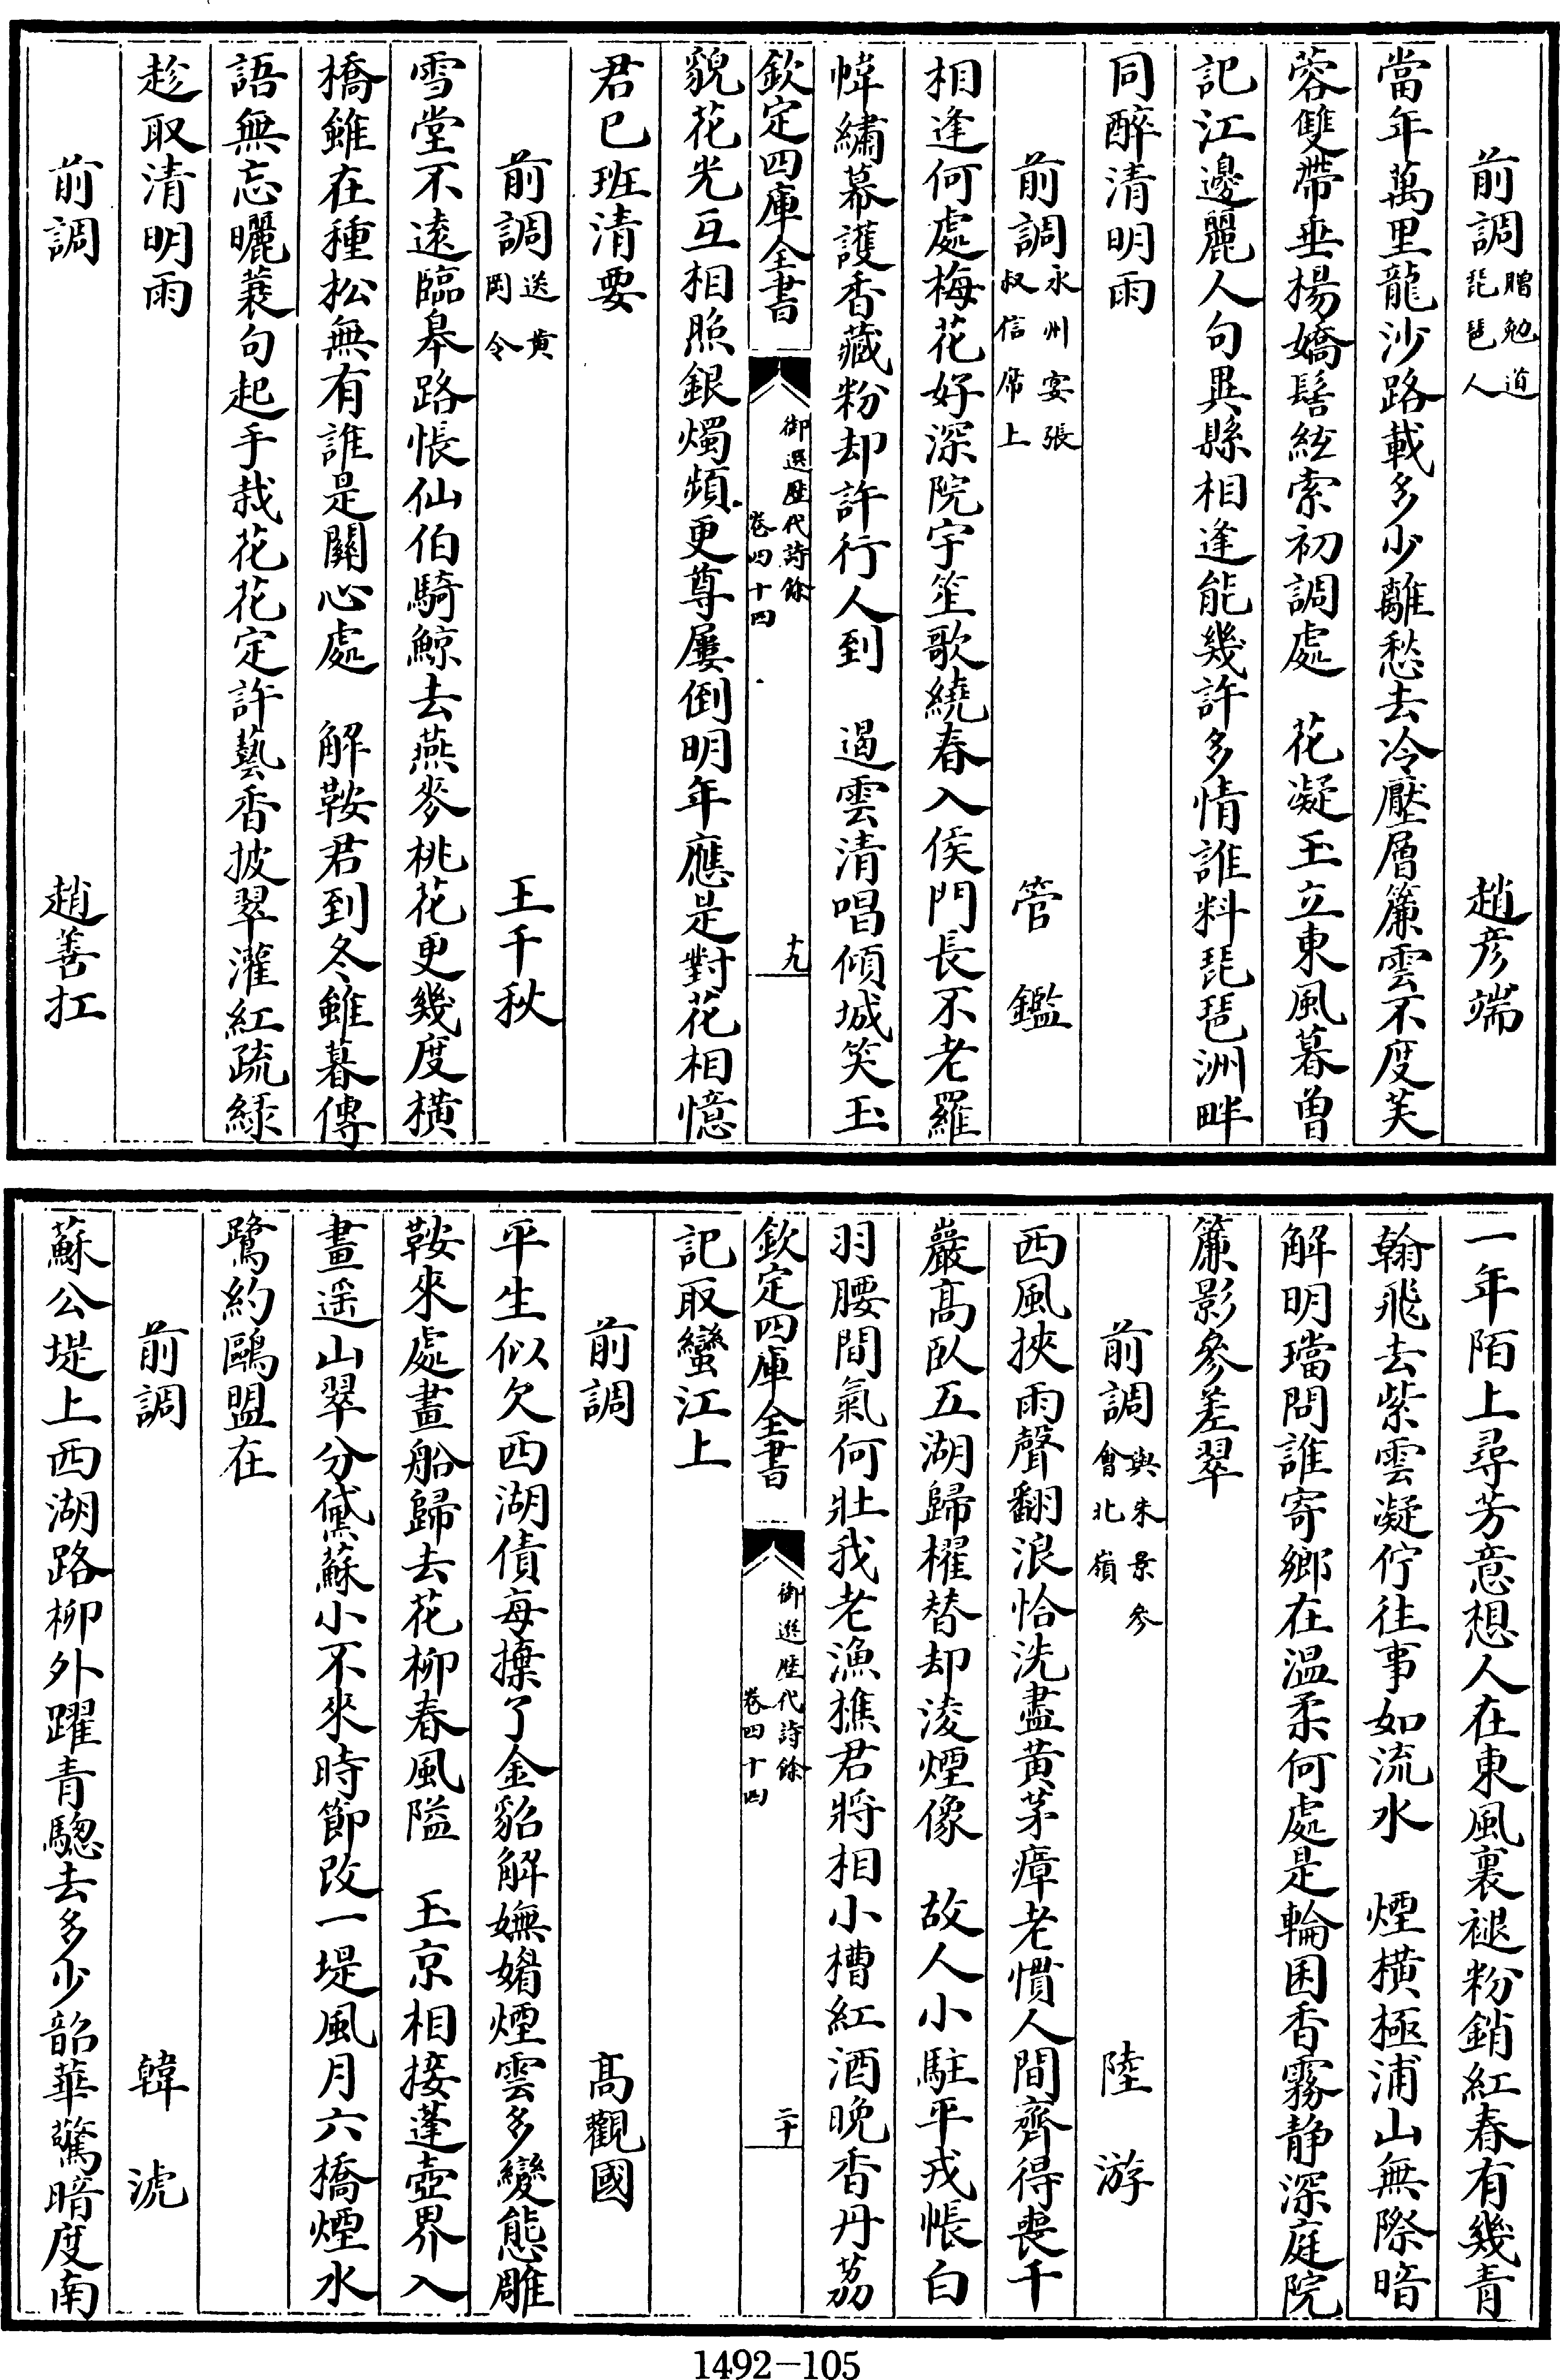 前調贈勉道琵琶人　趙彦端
當年萬里龍沙路載多少離愁去冷壓層簾雲不度芙
蓉雙帶垂楊嬌髻絃索初調處　花凝玉立東風暮曽
記江邊麗人句異縣相逢能幾許多情誰料琵琶洲畔
同醉清明雨
前調永州宴張叔信席上　管鑑
相逢何處梅花好深院宇笙歌繞春入侯門長不老羅
幃繡幕護香藏粉却許行人到　遏雲清唱傾城笑玉
欽定四庫全書　御選歷代詩餘卷四十四　十九
貌花光互相照銀燭頻更尊屢倒明年應是對花相憶
君已班清要
前調送黄岡令　王千秋
雪堂不遠臨皋路悵仙伯騎鯨去燕麥桃花更幾度橫
橋雖在種松無有誰是關心處　解鞍君到冬雖暮傳
語無忘曬蓑句起手栽花花定許藝香披翠灌紅疏綠
趁取清明雨
前調　趙善扛
一年陌上尋芳意想人在東風裏褪粉銷紅春有幾青
翰飛去紫雲凝佇往事如流水　煙橫極浦山無際暗
解明璫問誰寄鄉在溫柔何處是輪困香霧静深庭院
簾影參差翠
前調與朱景參會北嶺　陸游
西風挾雨聲翻浪恰洗盡黄茅瘴老慣人間齊得喪千
巖髙臥五湖歸櫂替却淩煙像　故人小駐平戎帳白
羽腰間氣何壯我老漁樵君將相小槽紅酒晚香丹荔
欽定四庫全書　御選歷代詩餘卷四十四　二十
記取蠻江上
前調　髙觀國
平生似欠西湖債毎㨿了金貂解嫵媚煙雲多變態雕
鞍來處畫船歸去花柳春風隘　玉京相接蓬壺界入
畫遥山翠分黛蘇小不來時節改一堤風月六橋煙水
鷺約鷗盟在
前調　韓淲
蘇公堤上西湖路柳外躍青驄去多少韶華驚暗度南
1492—105